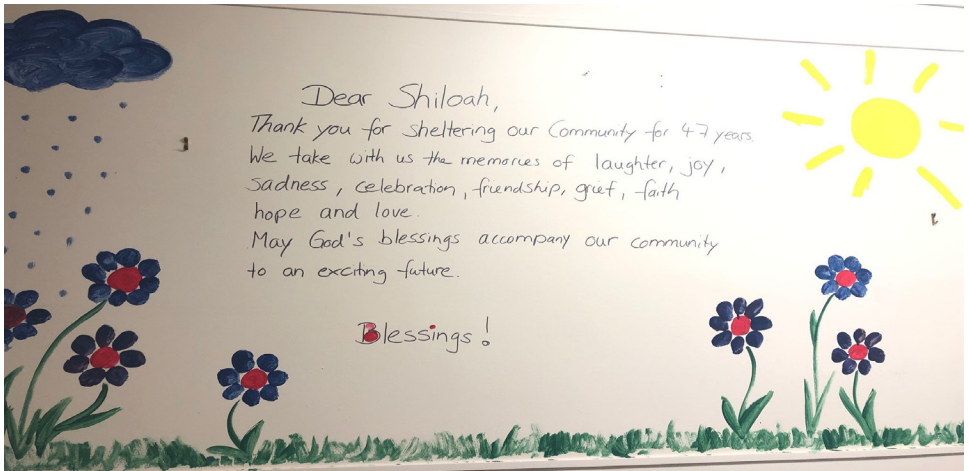 Dear Shiloah,
Thank you for sheltering our Community for 47 years.
We take with us the memories of laughter, joy,
sadness, celebration, friendship, grief, faith
hope and love.
May God's blessings accompany our community
to an exciting future.
Blessings!